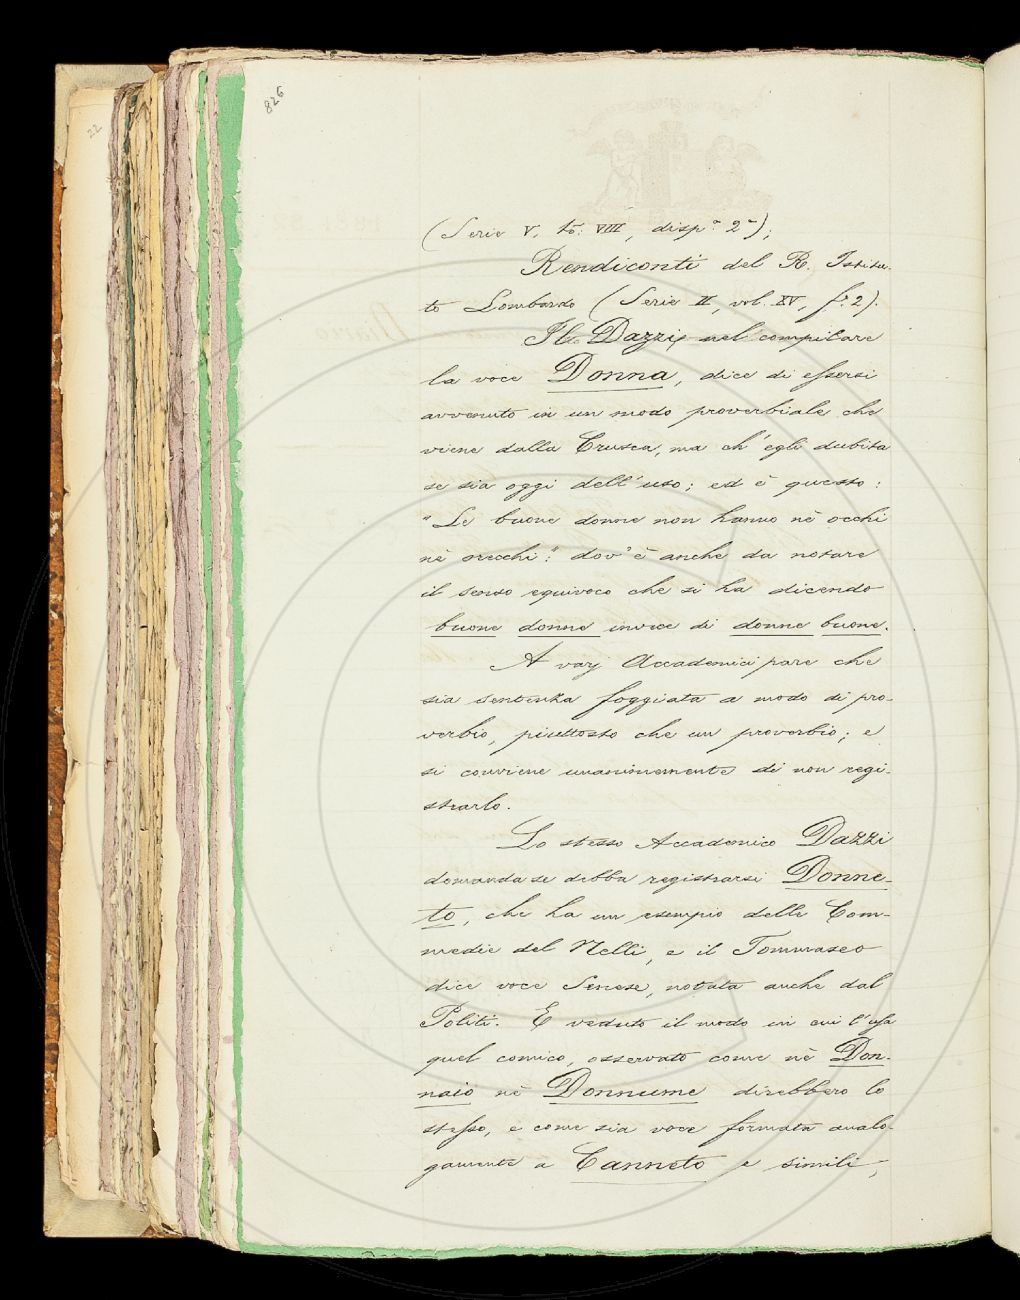 826
22
(Serie V, to: VIII, disp.ª 2ª);
Rendiconti del R. Istitu-
to Lombardo (Serie II, vol. XV, f.° 2).
Il Dazzi, nel compilare
la voce Donna, dice di essersi
avvenuto in un modo proverbiale che
viene dalla Crusca, ma ch'egli dubita
se sia oggi dell'uso; ed è questo:
"Le buone donne non hanno nè occhi
nè orecchi": dov'è anche da notare
il senso equivoco che si ha dicendo
buone donne invece di donne buone.
A varj Accademici pare che
sia sentenza foggiata a modo di pro-
verbio, piuttosto che un proverbio; e
si conviene unanimemente di non regi-
strarlo.
Lo stesso Accademico Dazzi
domanda se debba registrarsi Donne-
to, che ha un esempio delle Com-
medie del Nelli, e il Tommaseo
dice voce Senese, notata anche dal
Politi. E veduto il modo in cui l'usa
quel comico, osservato come nè Don-
naio nè Donnume direbbero lo
stesso, e come sia voce formata analo-
gamente a Canneto e simili,